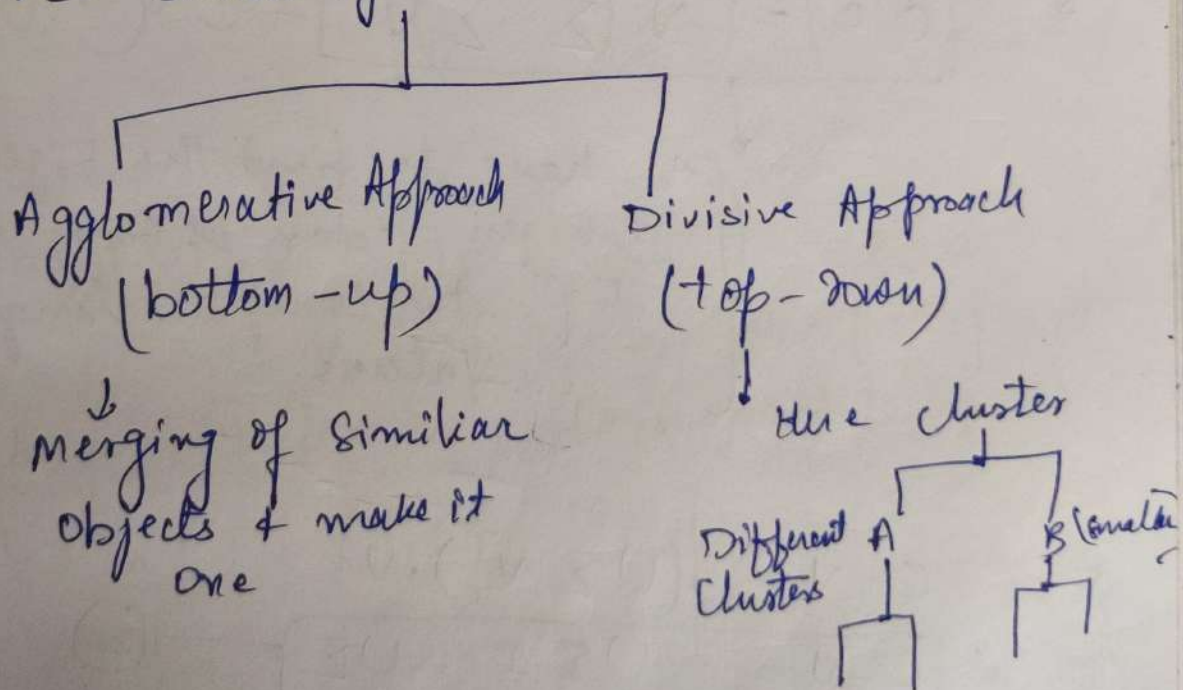 Agglomerative Approach
(bottom-up)
Merging of Similiar
Objects & make it
One
Divisive Approach
(top-down)
cluster
Different A
Clusters
B (smaller